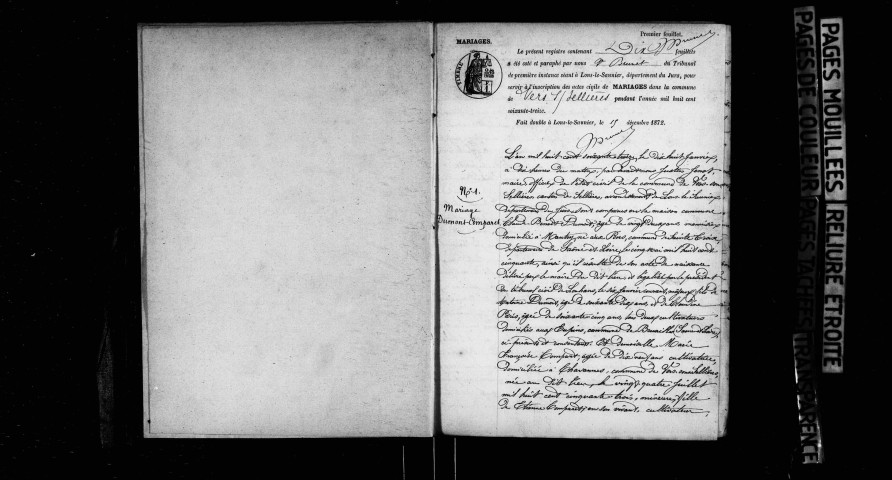 Premier feuillet.
MARIAGES.
Le présent registre contenant Dix feuillets
a été coté et paraphé par nous Vt Brunet du Tribunal
de première instance séant à Lons-le-Saunier, département du Jura, pour
servir à l'inscription des actes civils de MARIAGES dans la commune
de Vers S/ Sellières pendant l'année mil huit cent
soixante-treize.
Fait double à Lons-le-Saunier, le 15 décembre 1872.
TIMBRE
No 1.
Mariage
Dumont-Comparet
L'an mil huit cent soixante treize, le dix huit janvier,
à dix heures du matin, par devant nous
maire, officier de l'état civil de la commune de Vers sous
Sellières, canton de Sellières, arrondissement de Lons le Saunier,
département du Jura, sont comparus en la maison commune
Claude Benoit Dumont, âgé de vingt deux ans,
domicilié à Mantry, né aux commune de Sainte Croix,
département de Saône et Loire, le cinq mai mil huit cent
cinquante, ainsi qu'il résulte de son acte de naissance
délivré par le maire du dit lieu, et légalisé par le président
du tribunal civil de Louhans, le dix janvier courant, majeur, fils de
Dumont, âgé de soixante dix ans, et de Claudine
âgée de soixante cinq ans, tous deux cultivateurs
domiciliés aux commune de (Saône et Loire)
ci présents et consentants. Et demoiselle Marie
Françoise Comparet, âgée de dix neuf ans, cultivatrice,
domiciliée à Chavannes, commune de Vers sous Sellières,
née au dit lieu, le vingt quatre juillet
mil huit cent cinquante trois, mineure, fille
de Etienne Comparet, en son vivant, cultivateur
PAGES MOUILLEES RELIURE ETROITE
PAGES DE COULEUR PAGES TACHEES TRANSPARENCE